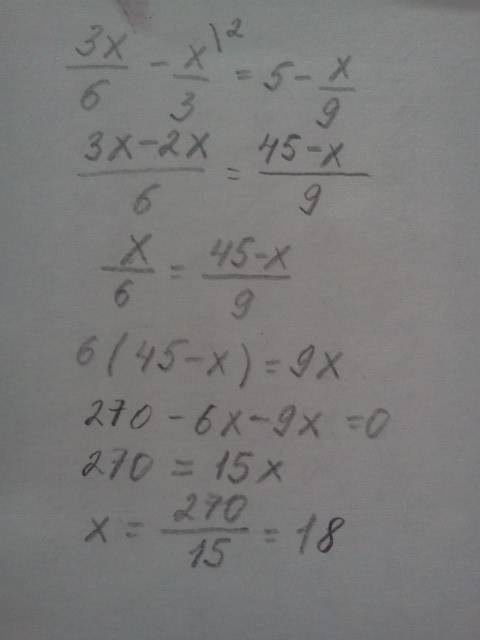 3x/6 - x/3 \2 = 5 - x/9
3x-2x/6 = 45-x/9
x/6 = 45-x/9
6(45-x)=9x
270-6x-9x=0
270=15x
x = 270/15 = 18